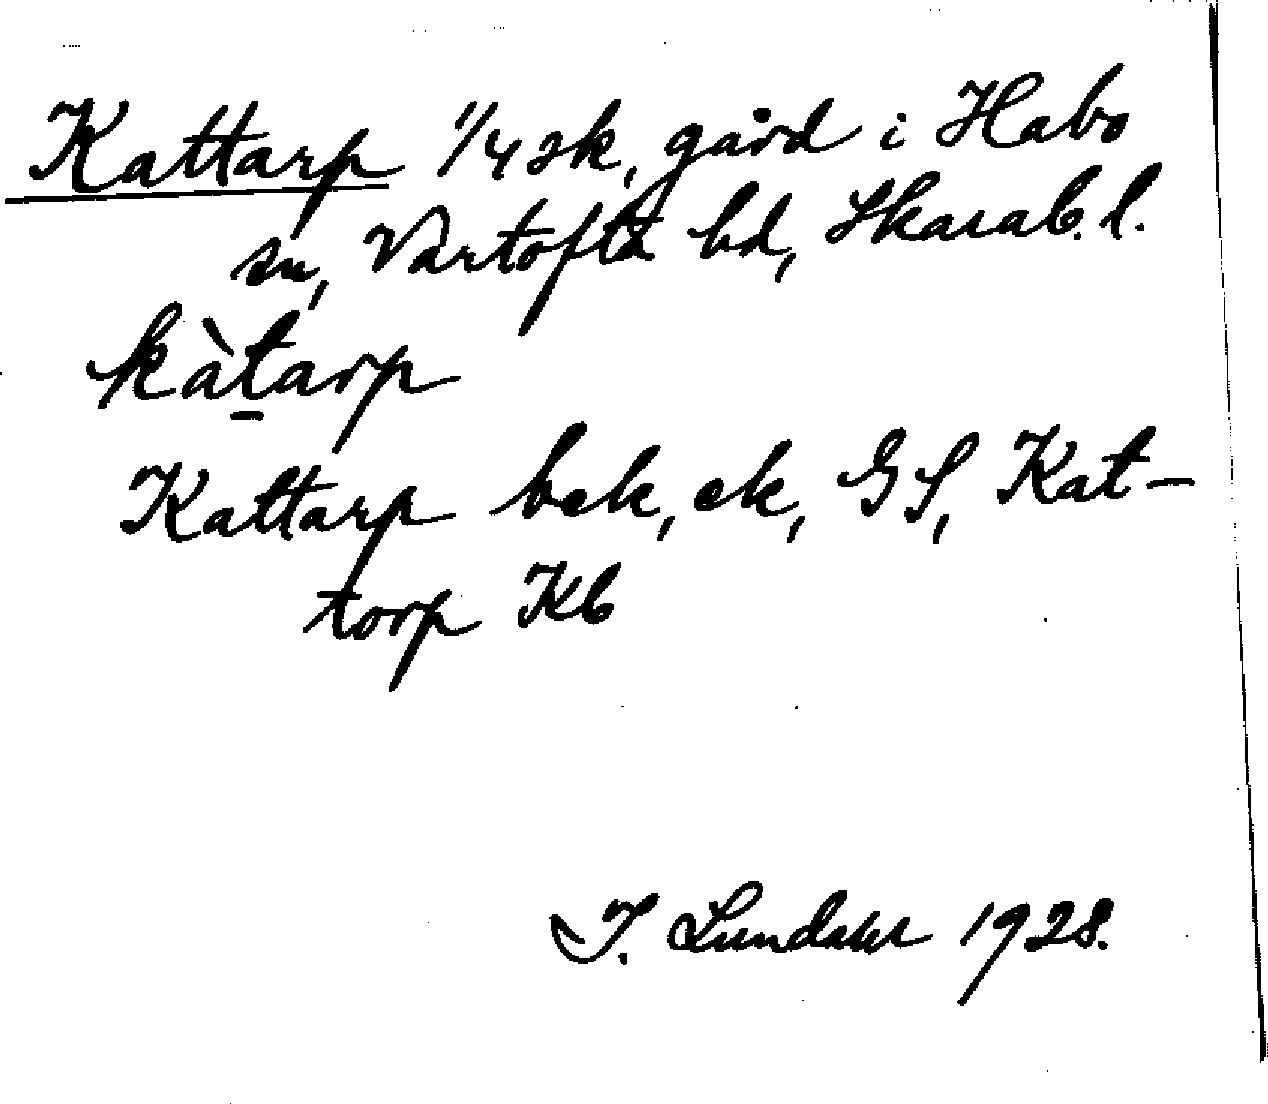 Kattarp 1/4 sk, gård i Habo
sn, Vartofta hd, Skarab. l.
kàt̠arp
Kattarp bek, ek, GS, Kat-
torp Kb
I. Lundahl 1928.